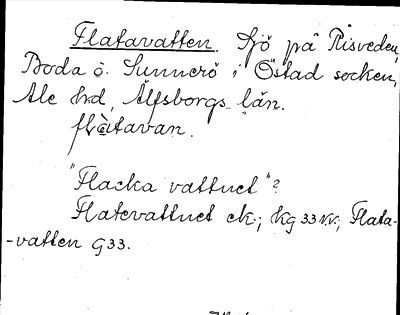 Flatavatten. Sjö på Risveden,
Boda o. Sunnerö i Östad socken,
Ale hrd, Älfsborgs län.
flàtavan.
"Flacka vattnet"?
Flatevattnet ek.; kg 33 NV.; Flata-
-vatten G33.